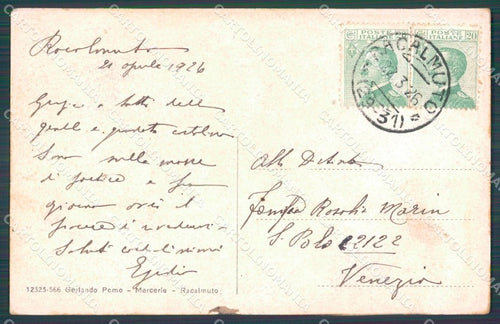 Racalmuto
21 aprile 1926
Grazie a tutti della
gentile e gradita cartolina
Sono sulle mosse
di partire e fra
giorni avrò il
piacere di rivedervi
Saluti cordialissimi
Egidio
12325-566 Gerlando Pomo - Merceria - Racalmuto
POSTE ITALIANE
POSTE ITALIANE 20
RACALMUTO
Rosolia Marin
S. Polo 2122
Venezia